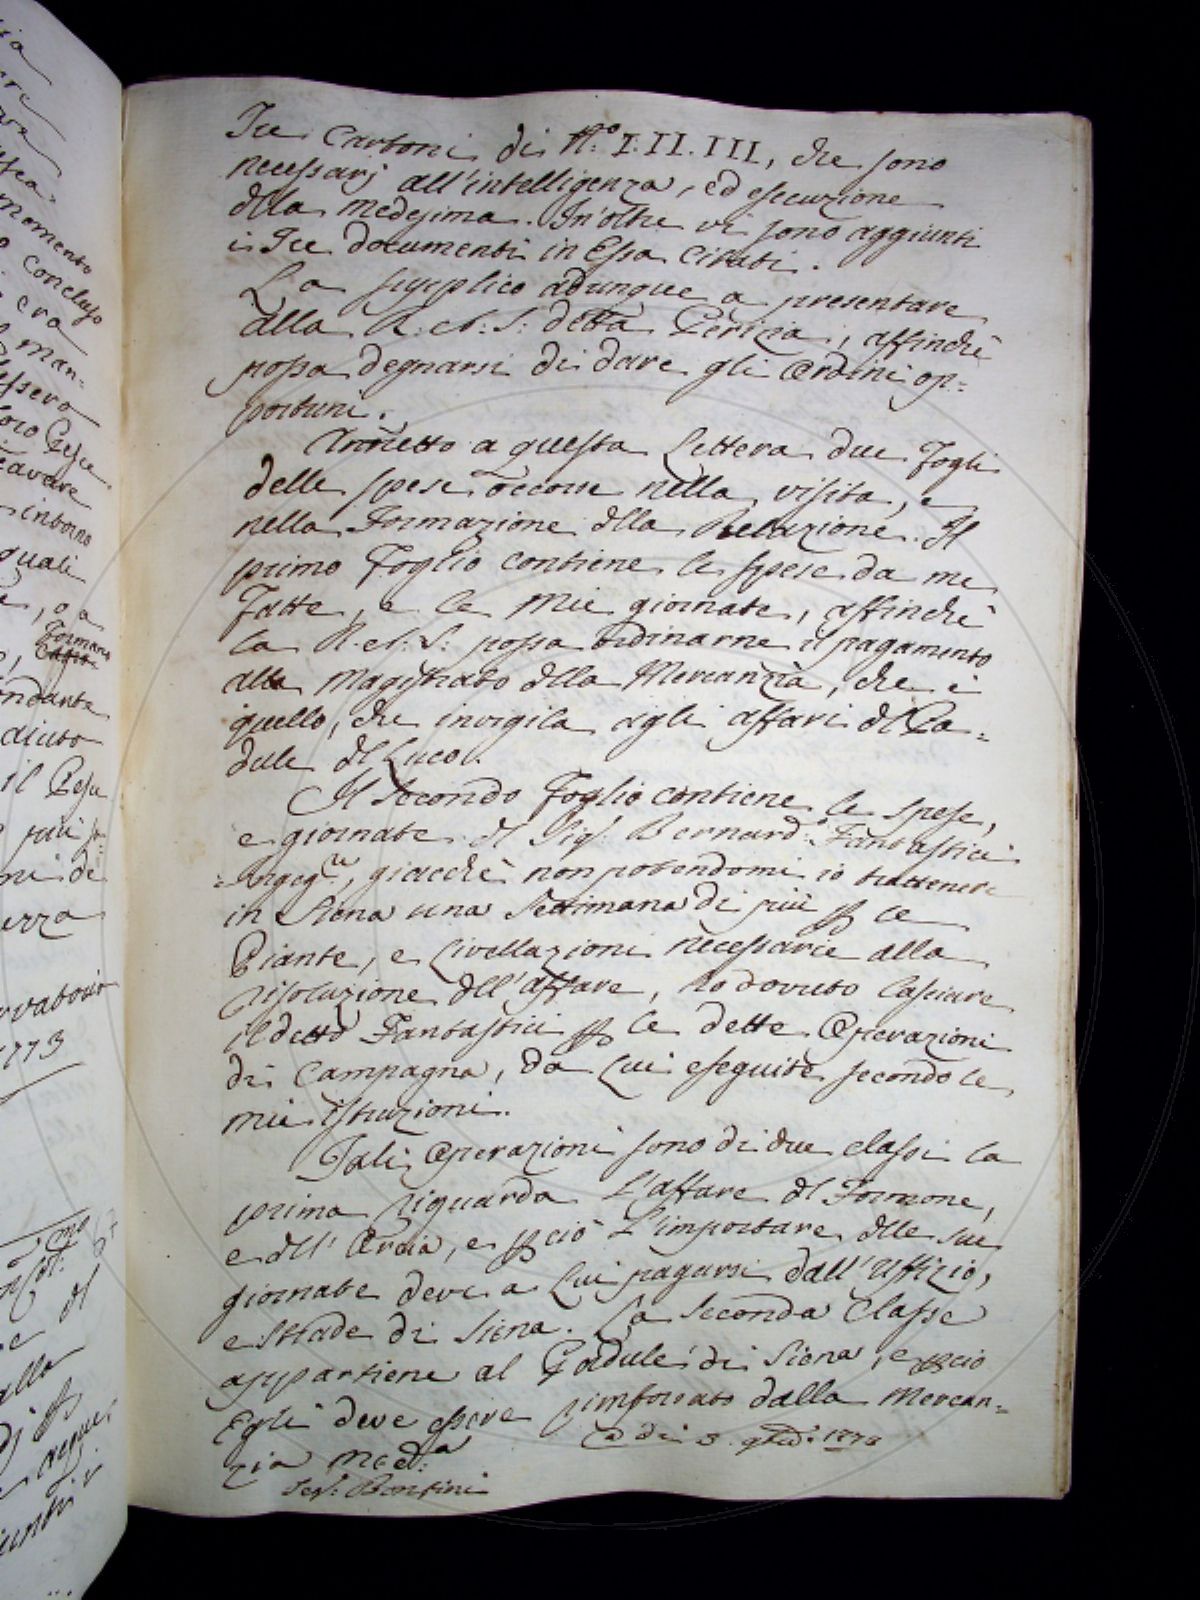 Tre Cartoni di N.º I. II. III, che sono
necessarj all'intelligenza, ed esecuzione
dlla medesima. In'oltre vi sono aggiunti
i Tre documenti in Essa Citati.
La supplico adunque a presentare
alla R. A. S: detta Perizia, affinchè
possa degnarsi di dare gli Ordini op-
portuni.
Annetto a questa Lettera due Fogli
delle spese occorse nella visita, e
nella Formazione dlla Relazione. Il
primo Foglio contiene le spese da me
Fatte, e le mie giornate, affinchè
la R. A. S. possa ordinarne il pagamento
alla Magistrato dlla Mercanzia, che è
quello, che invigila agli affari dl Pa-
dule dl Luco.
Il Secondo Foglio contiene le spese,
e giornate dl Sig.r Bernard.º Fantastici
Ingeg.re, giacchè non potendomi io trattenere
in Siena una Settimana di più p le
Piante, e Livellazioni necessarie alla
risoluzione dll'affare, ho dovuto lasciare
il detto Fantastici p le dette Operazioni
di Campagna, da Lui eseguite secondo le
mie istruzioni.
Tali Operazioni sono di due classi la
prima riguarda L'affare dl Formone,
e dll' Orcia, e pciò L'importare dlle sue
giornate deve a Lui pagarsi dall'Uffizio,
e Strade di Siena. La Seconda Classe
appartiene al Padule di Siena, e pciò
Egli deve essere rimborsato dalla Mercan-
zia med.a
A di 3. 1773
Seg.: Bonfini
momento
concluso
era
man-
intorno
quali
e, o a
Formano
il Pesce
1773
dl